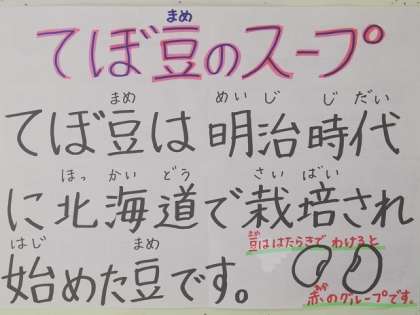 まめ
てぼ豆のスープ
まめ めいじ じだい
てぼ豆は明治時代
ほっかいどう さいばい
に北海道で栽培され
まめ
豆ははたらきでわけると
はじ まめ
始めた豆です。
あか
赤のグループです。